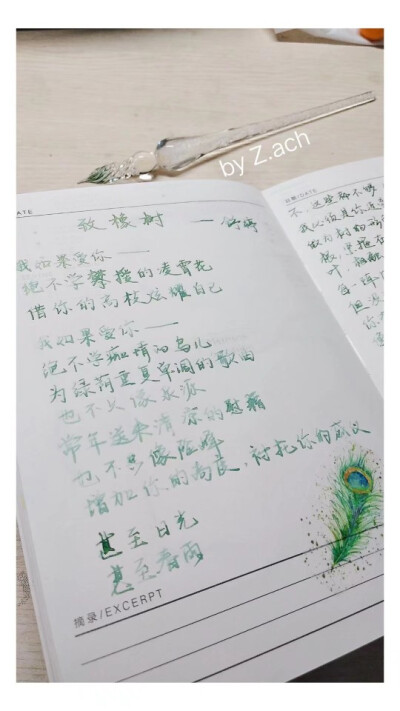 by Z.ach
DATE
致橡树 ——舒婷
我如果爱你——
绝不学攀援的凌霄花
借你的高枝炫耀自己
我如果爱你——
绝不学痴情的鸟儿
为绿荫重复单调的歌曲
也不只像泉源
常年送来清凉的慰藉
也不只像险峰
增加你的高度,衬托你的威仪
甚至日光
甚至春雨
摘录/EXCERPT
日期/DATE
不,这些都不够
我必须是你近
做为树的
叶,相触
每一阵
但没
你